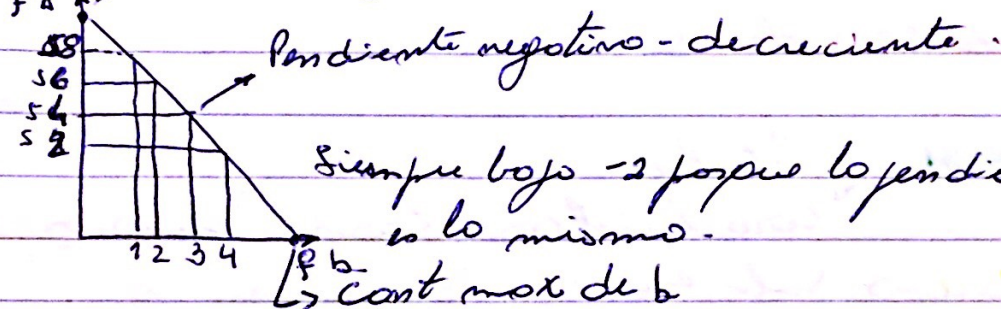 58
Pendiente negativa - decreciente.
56
54
52
Siempre bajo -2 porque la pendie
es la misma.
1 2 3 4
b
↳ Cant max de b